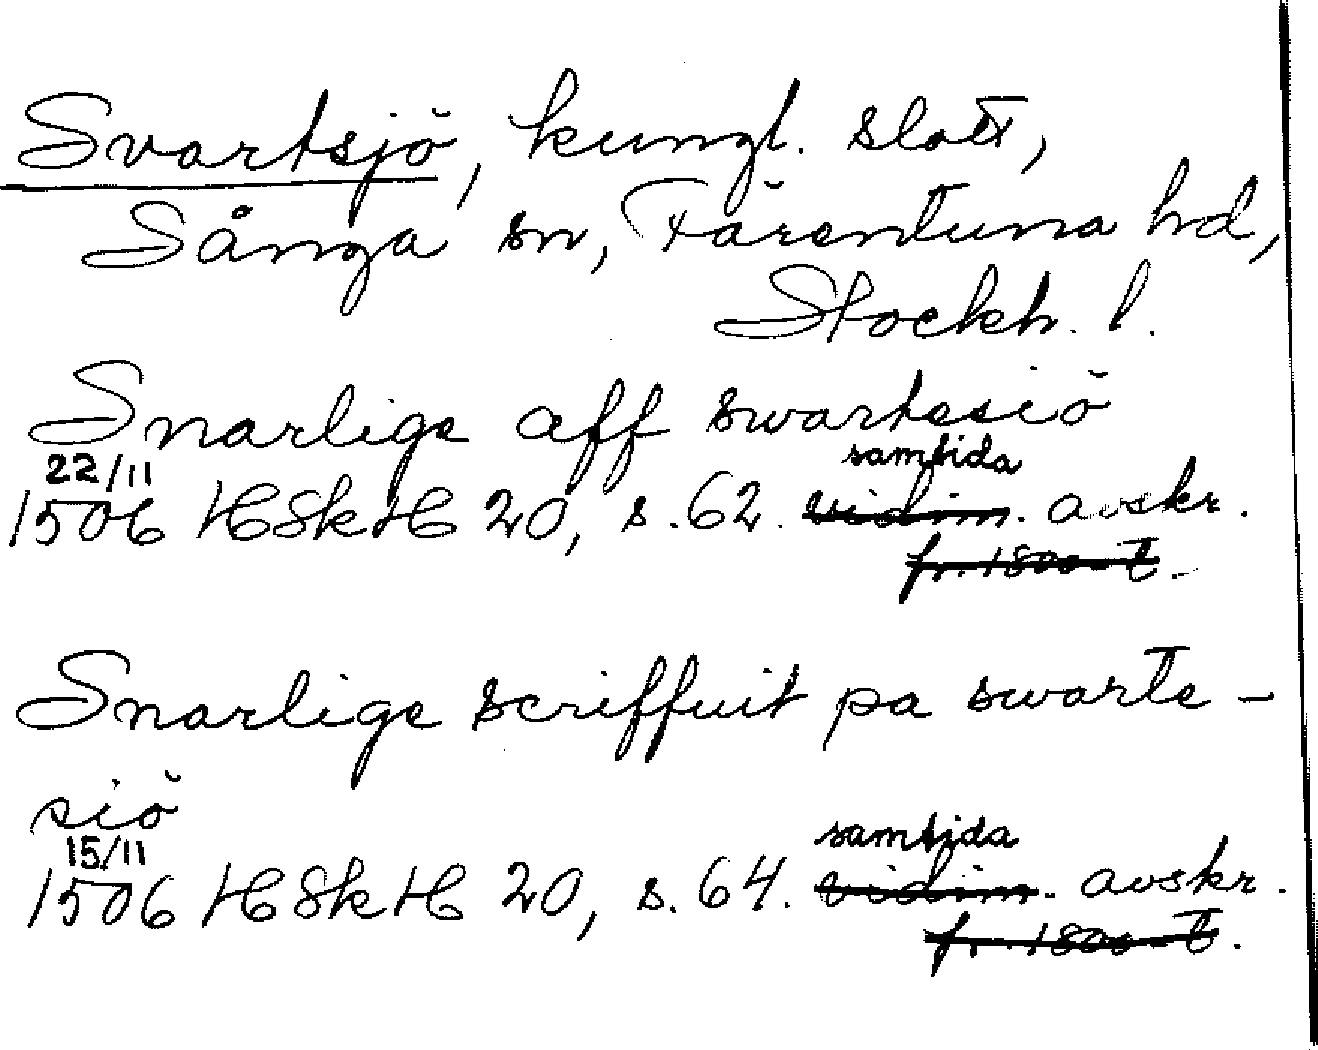 Svartsjö, kungl. slott,
Sånga sn, Färentuna hd,
Stockh. l.
Snarlige aff swartesiö
22/11 samtida
1506 HSkH 20, s. 62. vidim. avskr.
fr. 1800-t.
Snarlige scriffuit pa swarte-
siö
15/11 samtida
1506 HSkH 20, s. 64. vidim. avskr.
fr. 1800-t.